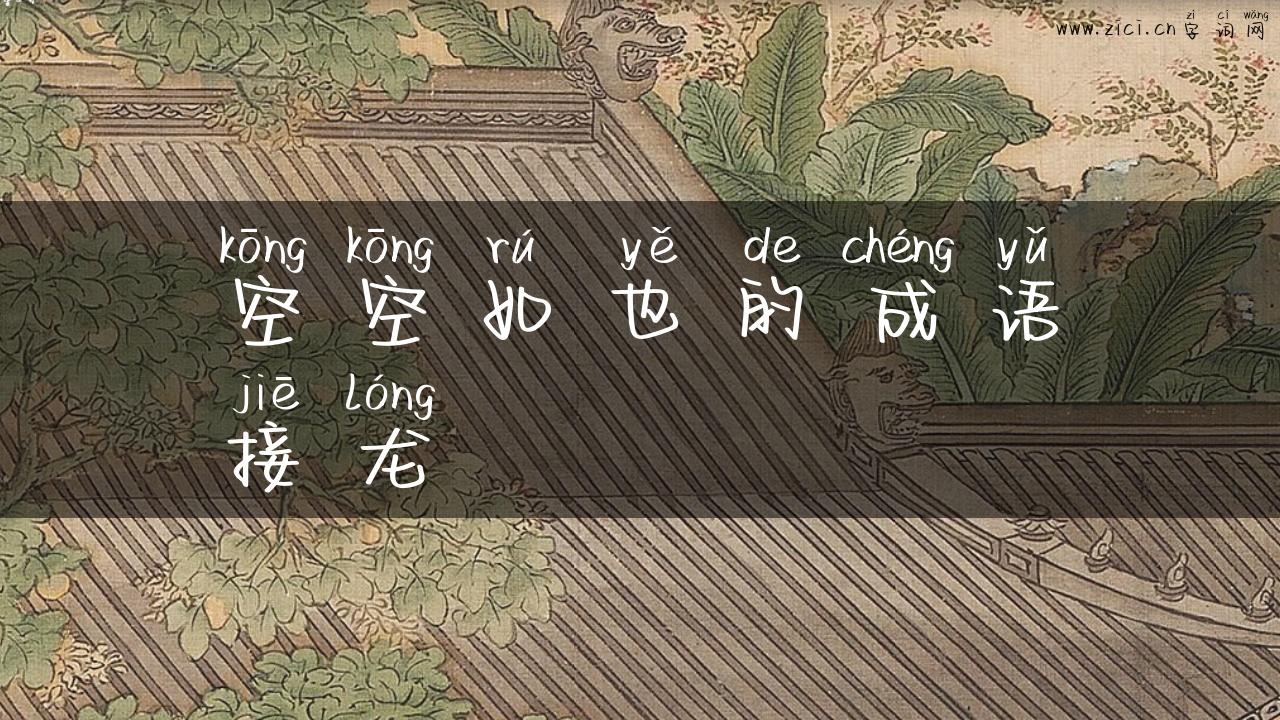 zì cí wǎng
www.zici.cn 字 词 网
kōng kōng rú yě de chéng yǔ
空 空 如 也 的 成 语
jiē lóng
接 龙